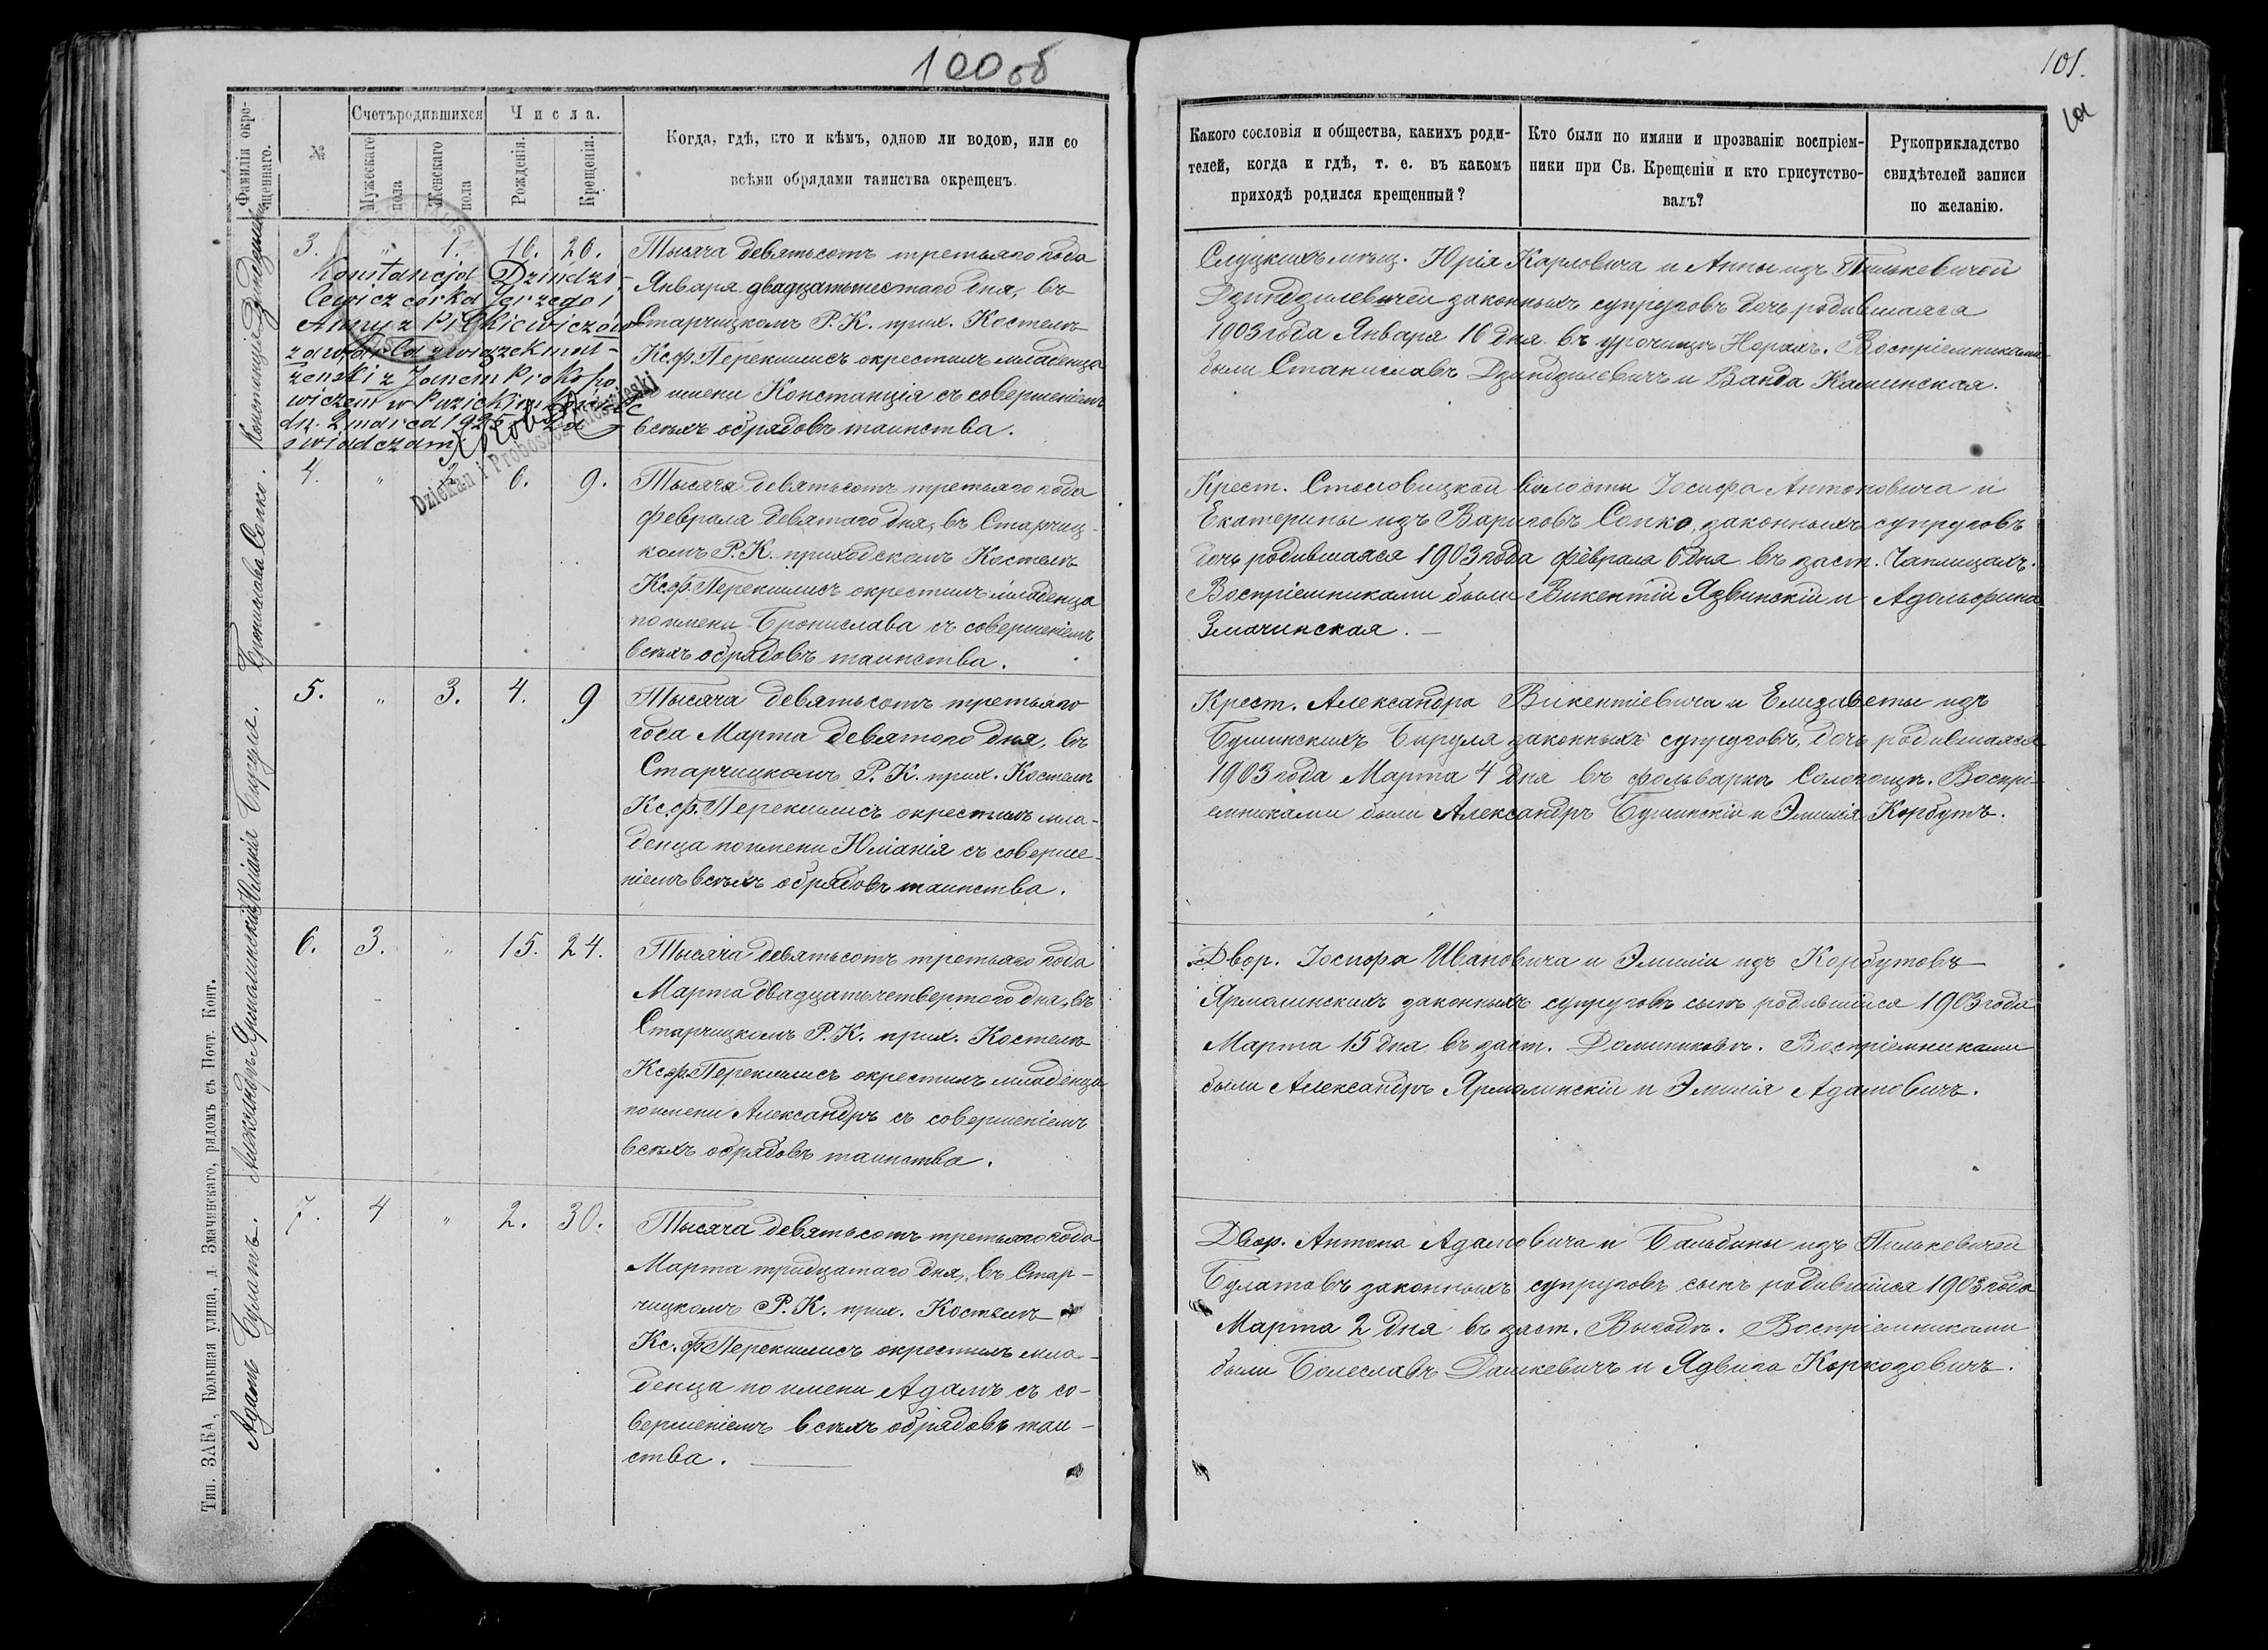 100 об
101.
101
Фамилія окрещеннаго.
№
Счетъ родившихся
Мужескаго пола
Женскаго пола
Числа.
Рожденія.
Крещенія.
Когда, гдѣ, кто и кѣмъ, одною ли водою, или со
всѣми обрядами таинства окрещенъ.
Какого сословія и общества, какихъ роди-
телей, когда и гдѣ, т. е. въ какомъ
приходѣ родился крещенный?
Кто были по имяни и прозванію воспріем-
ники при Св. Крещеніи и кто присутство-
валъ?
Рукоприкладство
свидѣтелей записи
по желанію.
3. " 1. 16. 26.
Konstancja Dzindzi-
lewicz córka Jerzego i
Anny z Pilkiewiczów
zawarła związek mał-
żeński z Janem Prokopo
wiczem w
dn. 2 marca 1925
świadczam
Dziekan i Proboszcz
Тысяча девятьсотъ третьяго года
Января двадцатьшестаго дня, въ
Старчицкомъ Р. К. прих. Костелѣ
Кс. Ф. Перекшлисъ окрестилъ младенца
имени Констанція съ совершеніемъ
всѣхъ обрядовъ таинства.
Слуцкихъ мѣщ. Юрія Карловича и Анны изъ Пилькевичей
Дзиндзилевичей законныхъ супруговъ дочь родившаяся
1903 года Января 16 дня въ урочищѣ Норахъ. Воспріемниками
были Станиславъ Дзиндзилевичъ и Ванда Каминская.
Бронислава Сопко.
4. " 2. 6. 9.
Тысяча девятьсотъ третьяго года
Февраля девятаго дня, въ Старчиц-
комъ Р. К. приходскомъ Костелѣ
Кс. Ф. Перекшлисъ окрестилъ младенца
по имени Бронислава съ совершеніемъ
всѣхъ обрядовъ таинства.
Крест. волости Іосифа Антоновича и
Екатерины изъ Сопко законныхъ супруговъ
дочь родившаяся 1903 года Февраля 6 дня въ заст. Чаплицахъ.
Воспріемниками были Викентій Язвинскій и Адольфина
Змачинская. —
Юліанія Бируля.
5. " 3. 4. 9
Тысяча девятьсотъ третьяго
года Марта девятого дня, въ
Старчицкомъ Р. К. прих. Костелѣ
Кс. Ф. Перекшлисъ окрестилъ мла-
денца по имени Юліанія съ соверше-
ніемъ всѣхъ обрядовъ таинства.
Крест. Александра Викентіевича и Елизаветы изъ
Бушинскихъ Бируля законныхъ супруговъ, дочь родившаяся
1903 года Марта 4 дня въ фольваркѣ Воспрі-
емниками были Александръ Бушинскій и Эмилія Корбутъ.
Александръ Ярмолинскій
6. 3. " 15. 24.
Тысяча девятьсотъ третьяго года
Марта двадцатьчетвертого дня, въ
Старчицкомъ Р. К. прих. Костелѣ
Кс. Ф. Перекшлисъ окрестилъ младенца
по имени Александръ съ совершеніемъ
всѣхъ обрядовъ таинства.
Двор. Іосифа Ивановича и Эмиліи изъ Корбутовъ
Ярмолинскихъ законныхъ супруговъ сынъ родившійся 1903 года
Марта 15 дня въ заст. Доминиковѣ. Воспріемниками
были Александръ Ярмолинскій и Эмилія Адамовичъ.
Адамъ Булатъ.
7. 4 " 2. 30.
Тысяча девятьсотъ третьяго года
Марта тридцатаго дня, въ Стар-
чицкомъ Р. К. прих. Костелѣ
Кс. Ф. Перекшлисъ окрестилъ мла-
денца по имени Адамъ съ со-
вершеніемъ всѣхъ обрядовъ таи-
ства.
Двор. Антона Адамовича и Бальбины изъ Пилькевичей
Булатовъ законныхъ супруговъ сынъ родившійся 1903 года
Марта 2 дня въ заст. Выгодѣ. Воспріемниками
были Болеславъ Дашкевичъ и Ядвига Коркозовичъ.
Тип. ЗАБА, Большая улица, д. Змачинскаго, рядомъ съ Почт. Конт.